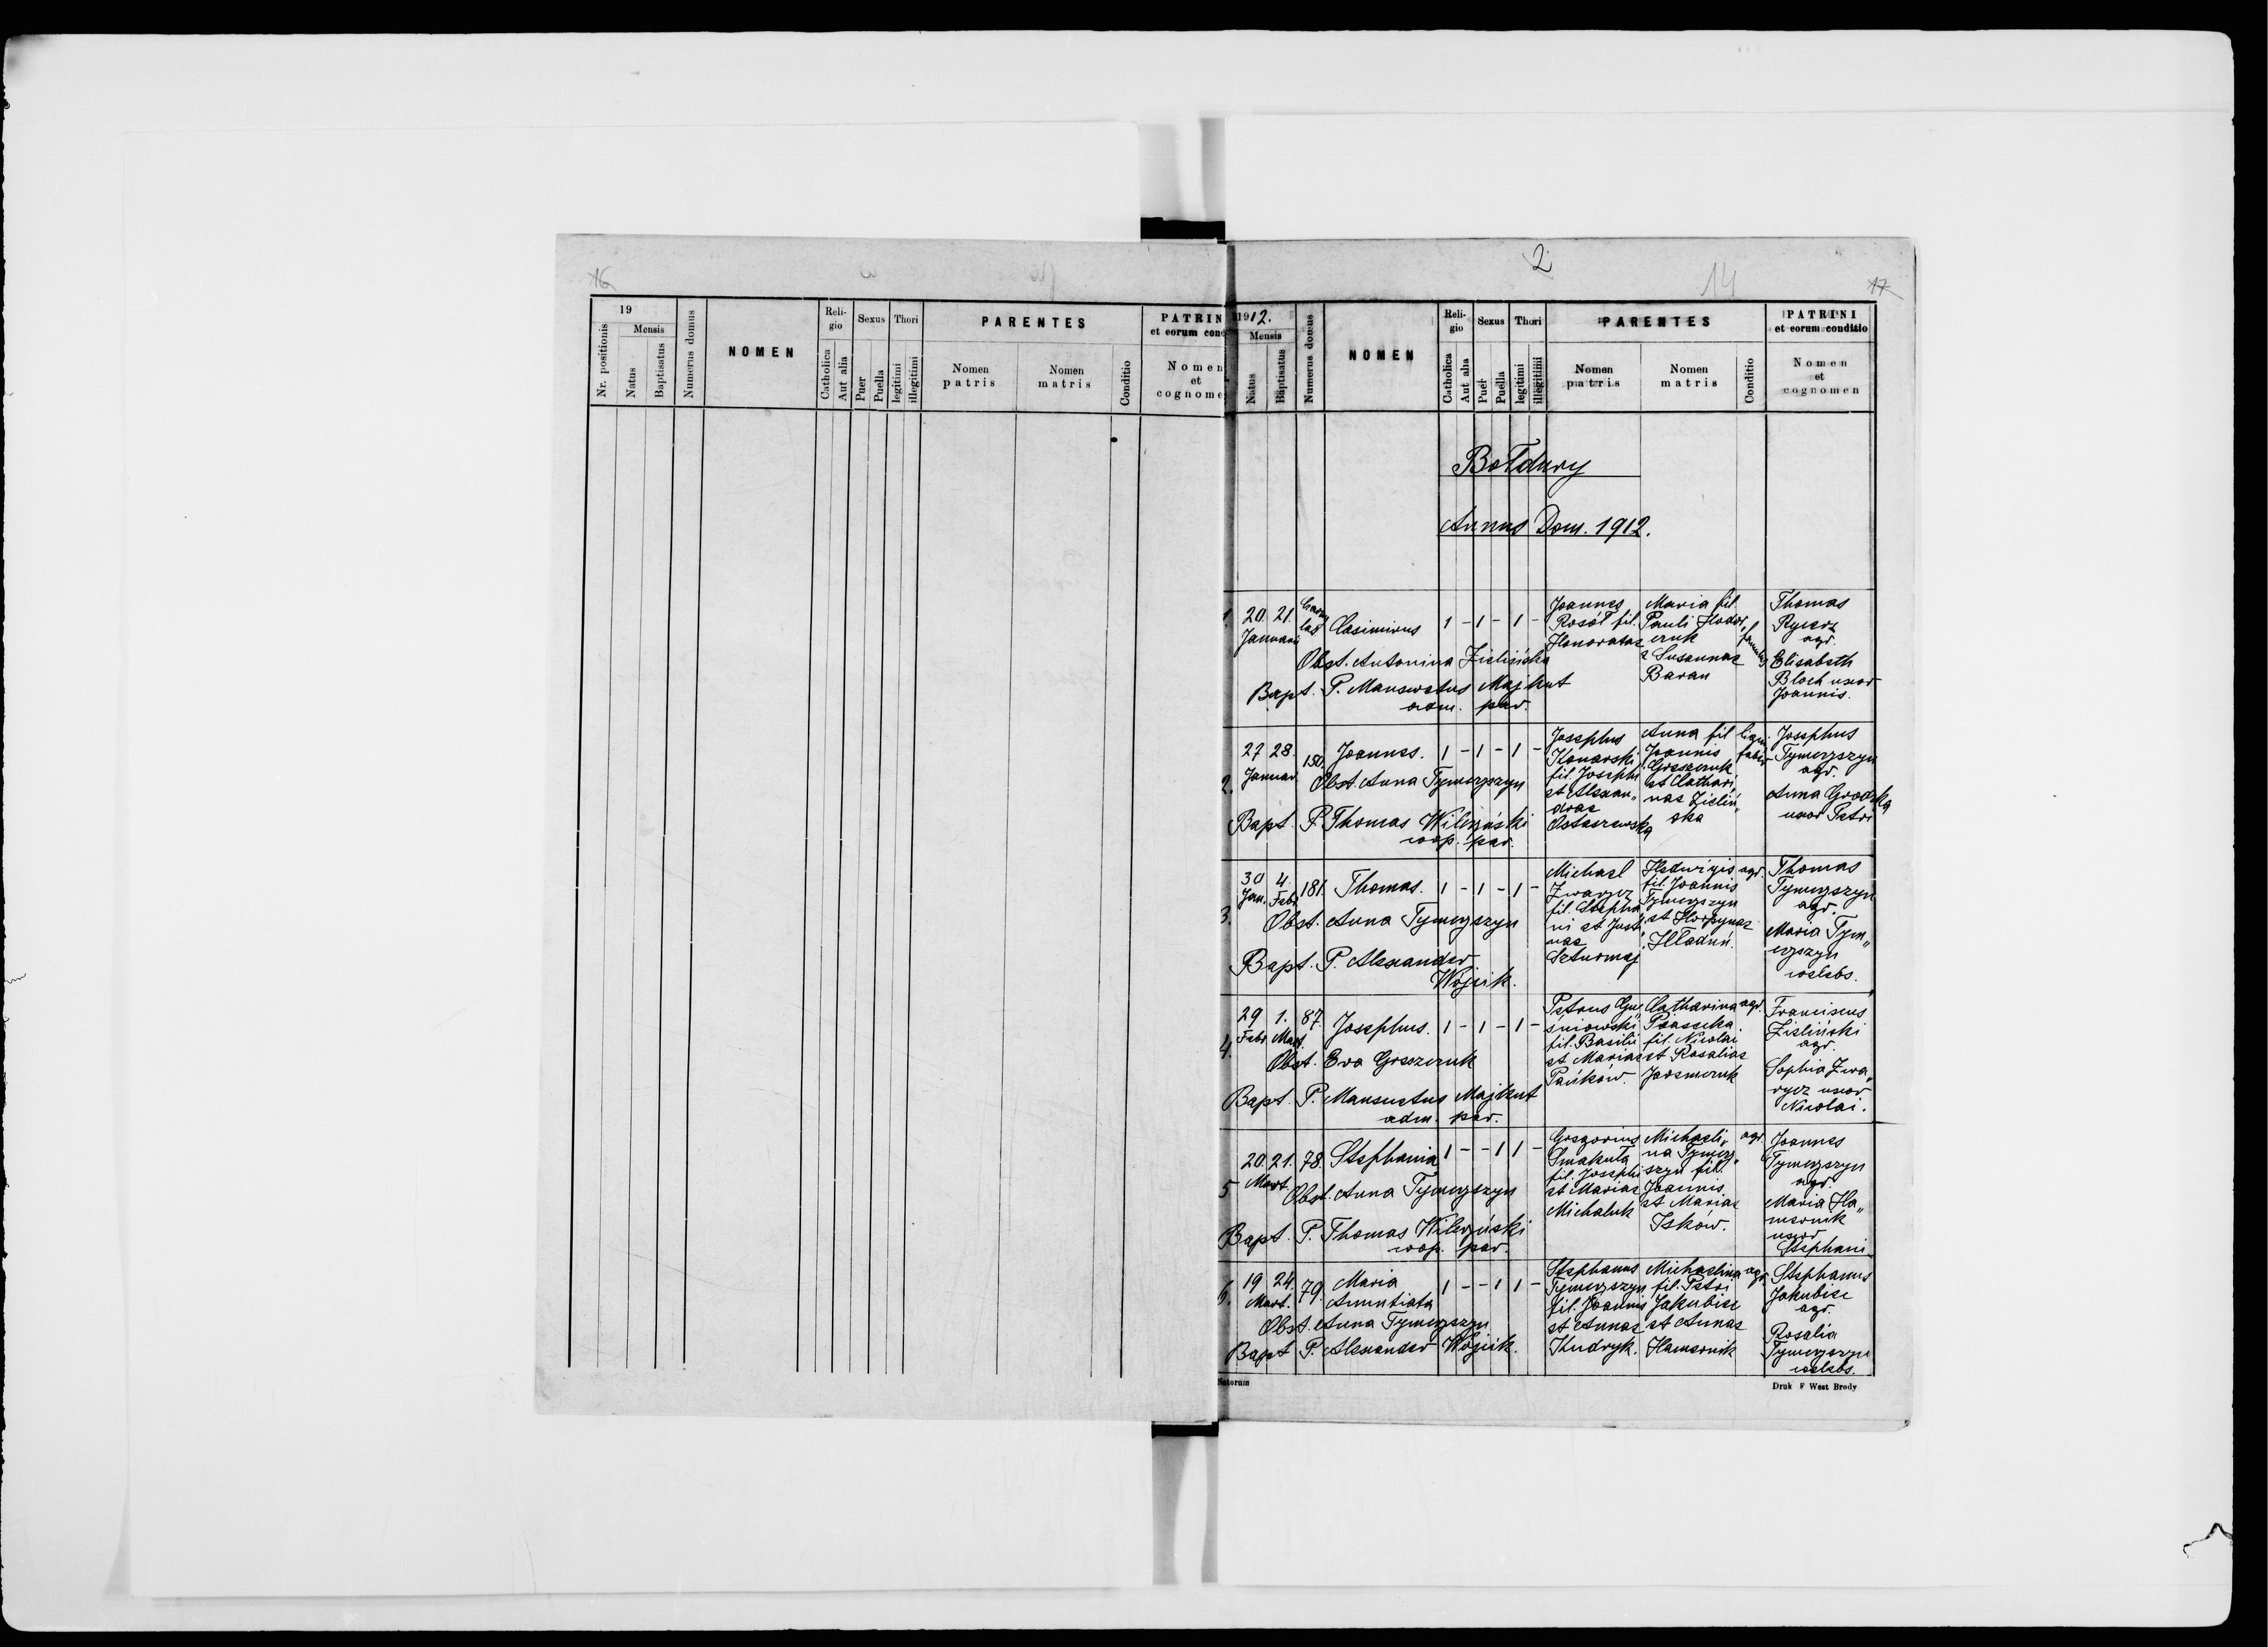 16
19
Nr. positionis
Mensis
Natus
Baptisatus
Numerus domus
NOMEN
Reli-
gio
Catholica
Aut alia
Sexus
Puer
Puella
Thori
legitimi
illegitimi
PARENTES
Nomen
patris
Nomen
matris
Conditio
PATRIN
et eorum cond
Nomen
et
cognome
2
14
17
1912.
Mensis
Natus
Baptisatus
Numerus domus
NOMEN
Reli-
gio
Catholica
Aut alia
Sexus
Puer
Puella
Thori
legitimi
illegitimi
PARENTES
Nomen
patris
Nomen
matris
Conditio
PATRINI
et eorum conditio
Nomen
et
cognomen
Bołdury
Annus Dom. 1912.
1. 20. 21.
Januarii
Casimirus
1 - 1 - 1 -
Obst. Antonina Zielińska
Bapt. P. Mansuetus Majkut
adm. par.
Joannes
Rosół fil.
Honoratae
Maria fil.
Pauli Hodow„
czuk
e Susannae
Baran
famulus
Thomas
Rycerz
agr.
Elisabeth
Bloch uxor
Joannis.
2. 27 28
Januar.
150.
Joannes.
1 - 1 - 1 -
Obst. Anna Tymczyszyn
Bapt. P. Thomas Wilczyński
coop. par.
Josephus
Konarski
fil. Josephi
et Alexan„
drae
Ostaszewska
Anna fil
Joannis
Greszczuk
et Cathari„
nae Zieliń„
ska
lign.
faber
Josephus
Tymczyszyn
agr.
Anna Grodzka
uxor Petri
3. 30 4.
Jan. Febr
181.
Thomas.
1 - 1 - 1 -
Obst. Anna Tymczyszyn
Bapt. P. Alexander
Wójcik.
Michael
Zwarycz
fil. Stepha„
ni et Justi„
nae
Szturmaj
Hedwigis
fil. Joannis
Tymczyszyn
et Horpynae
Hładuń.
agr.
Thomas
Tymczyszyn
agr.
Maria Tym„
czyszyn
coelebs.
4. 29 1.
Febr Mart.
87.
Josephus.
1 - 1 - 1 -
Obst. Eva Greszczuk
Bapt. P. Mansuetus Majkut
adm. par.
Petrus Gnie„
śniowski
fil. Basilii
et Mariae
Pańków.
Catharina
Piasecka
fil. Nicolai
et Rosaliae
Jaremczuk
agr.
Franciscus
Zieliński
agr.
Sophia Zwa„
rycz uxor
Nicolai.
5 20. 21.
Mart.
78.
Stephania
1 - - 1 1 -
Obst. Anna Tymczyszyn
Bapt. P. Thomas Wilczyński
coop. par.
Gregorius
Smakuła
fil. Josephi
et Mariae
Michaluk
Michaeli„
na Tymczy„
szyn fil.
Joannis
et Mariae
Iśków.
agr.
Joannes
Tymczyszyn
agr.
Maria Ha„
mernik
uxor
Stephani
6. 19 24.
Mart.
79.
Maria
Anuntiata
1 - - 1 1 -
Obst. Anna Tymczyszyn
Bapt P. Alexander Wójcik.
Stephanus
Tymczyszyn
fil. Joannis
et Annae
Kudryk.
Michaelina
fil. Petri
Jakubiec
et Annae
Hamernik
agr.
Stephanus
Jakubiec
agr.
Rosalia
Tymczyszyn
coelebs.
Natorum
Druk F West Brody